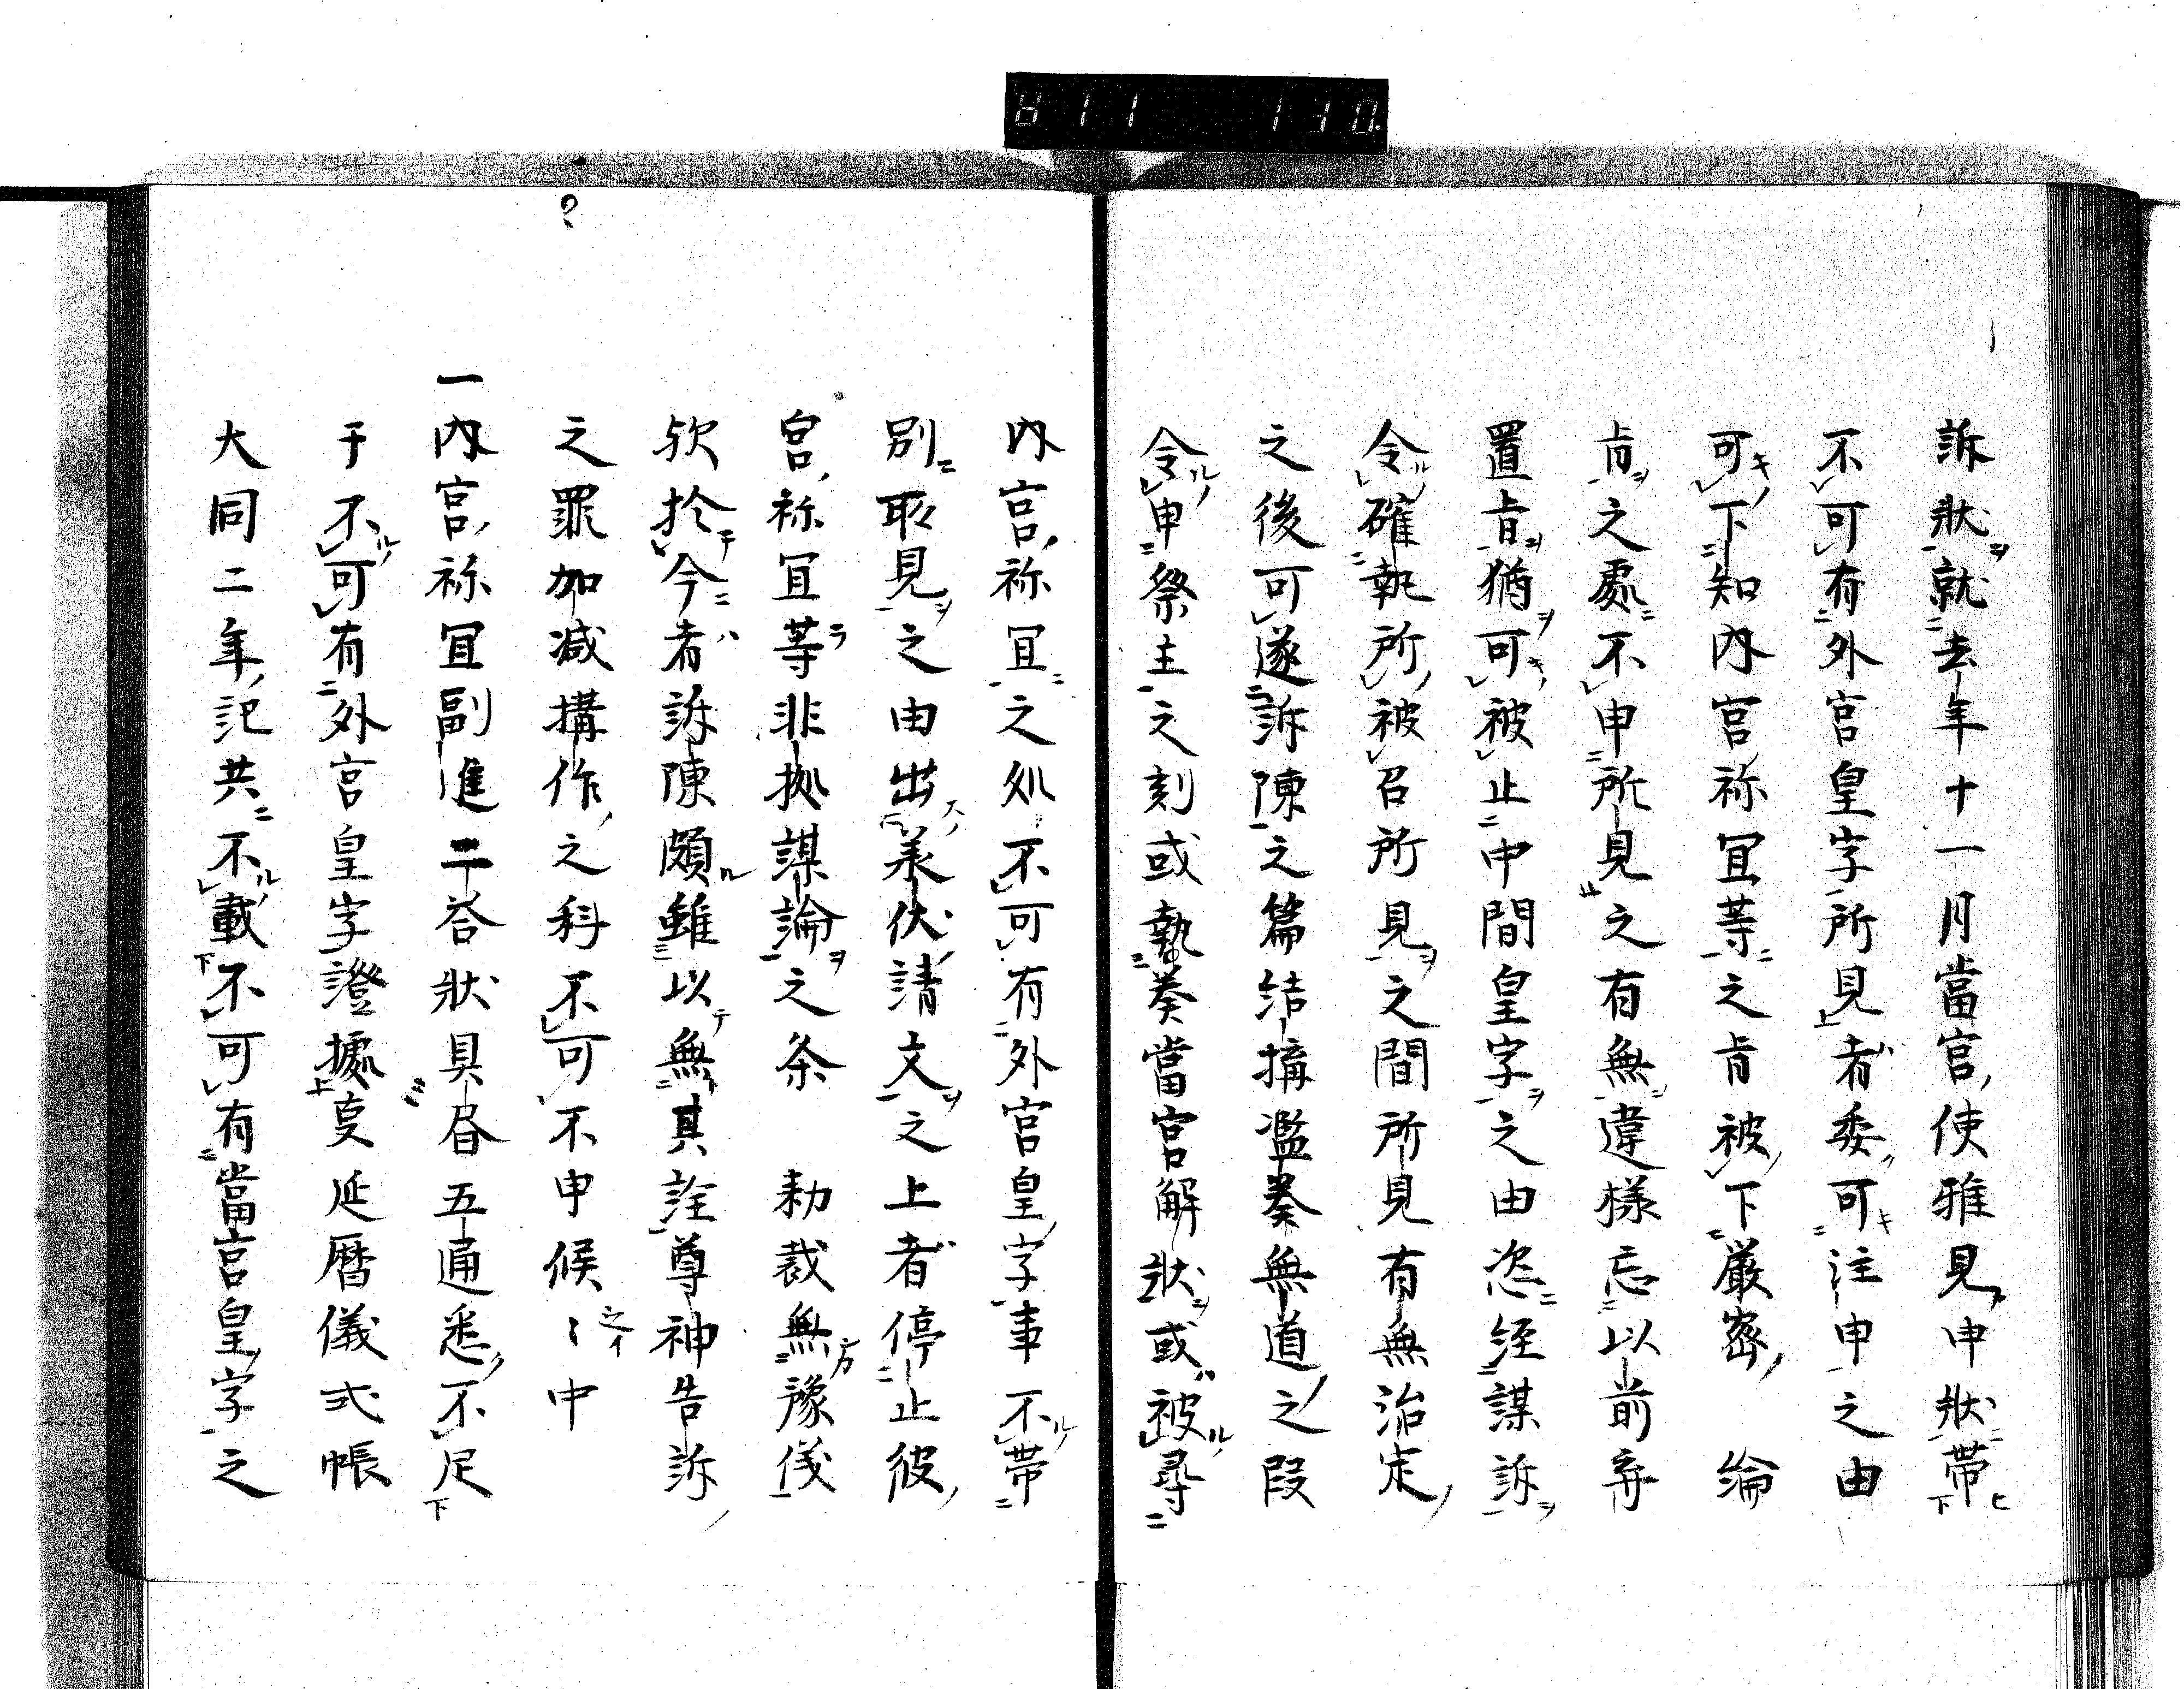 訴狀就去年十一月當官使雅見申狀帶
不可有外宮皇字所見者委可注申之由
可下知內宮祢冝等之旨被下嚴密綸
旨之處不申所見之有無違樣忘以前弃
置旨猶可被止中間皇字之由恣経謀訴
令確執所被召所見之間所見有無治定
之後可遂訴陳之篇結搆濫奏無道之段
令申祭主之刻或執奏當宮解狀或被尋
內宮祢冝之処不可有外宮皇字事不帶
別取見之由出羕伏請文之上者停止彼
宮祢冝等非拠謀論之条 勅裁無豫儀
欤扵今者訴陳頗雖以無其詮尊神告訴
之罪加减搆作之科不可不申候〻中
一內宮祢冝副進二答狀具晷五通悉不足
于不可有外宮皇字證據叓延曆儀式帳
大同二年記共不載不可有當宮皇字之